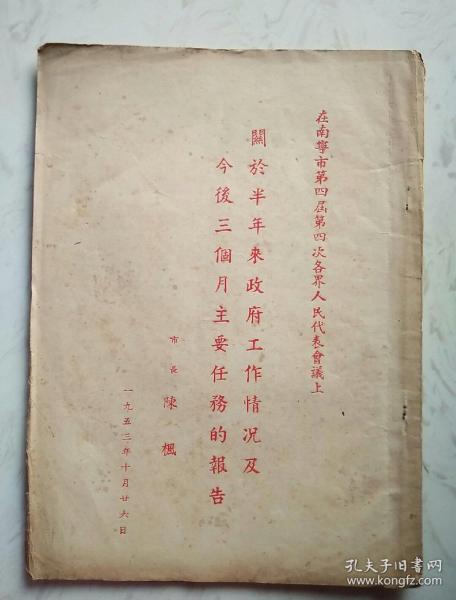 在南寧市第四屆第四次各界人民代表會議上
關於半年來政府工作情況及
今後三個月主要任務的報告
市長 陳楓
一九五三年十月廿六日
孔夫子旧书网
www.kongfz.com